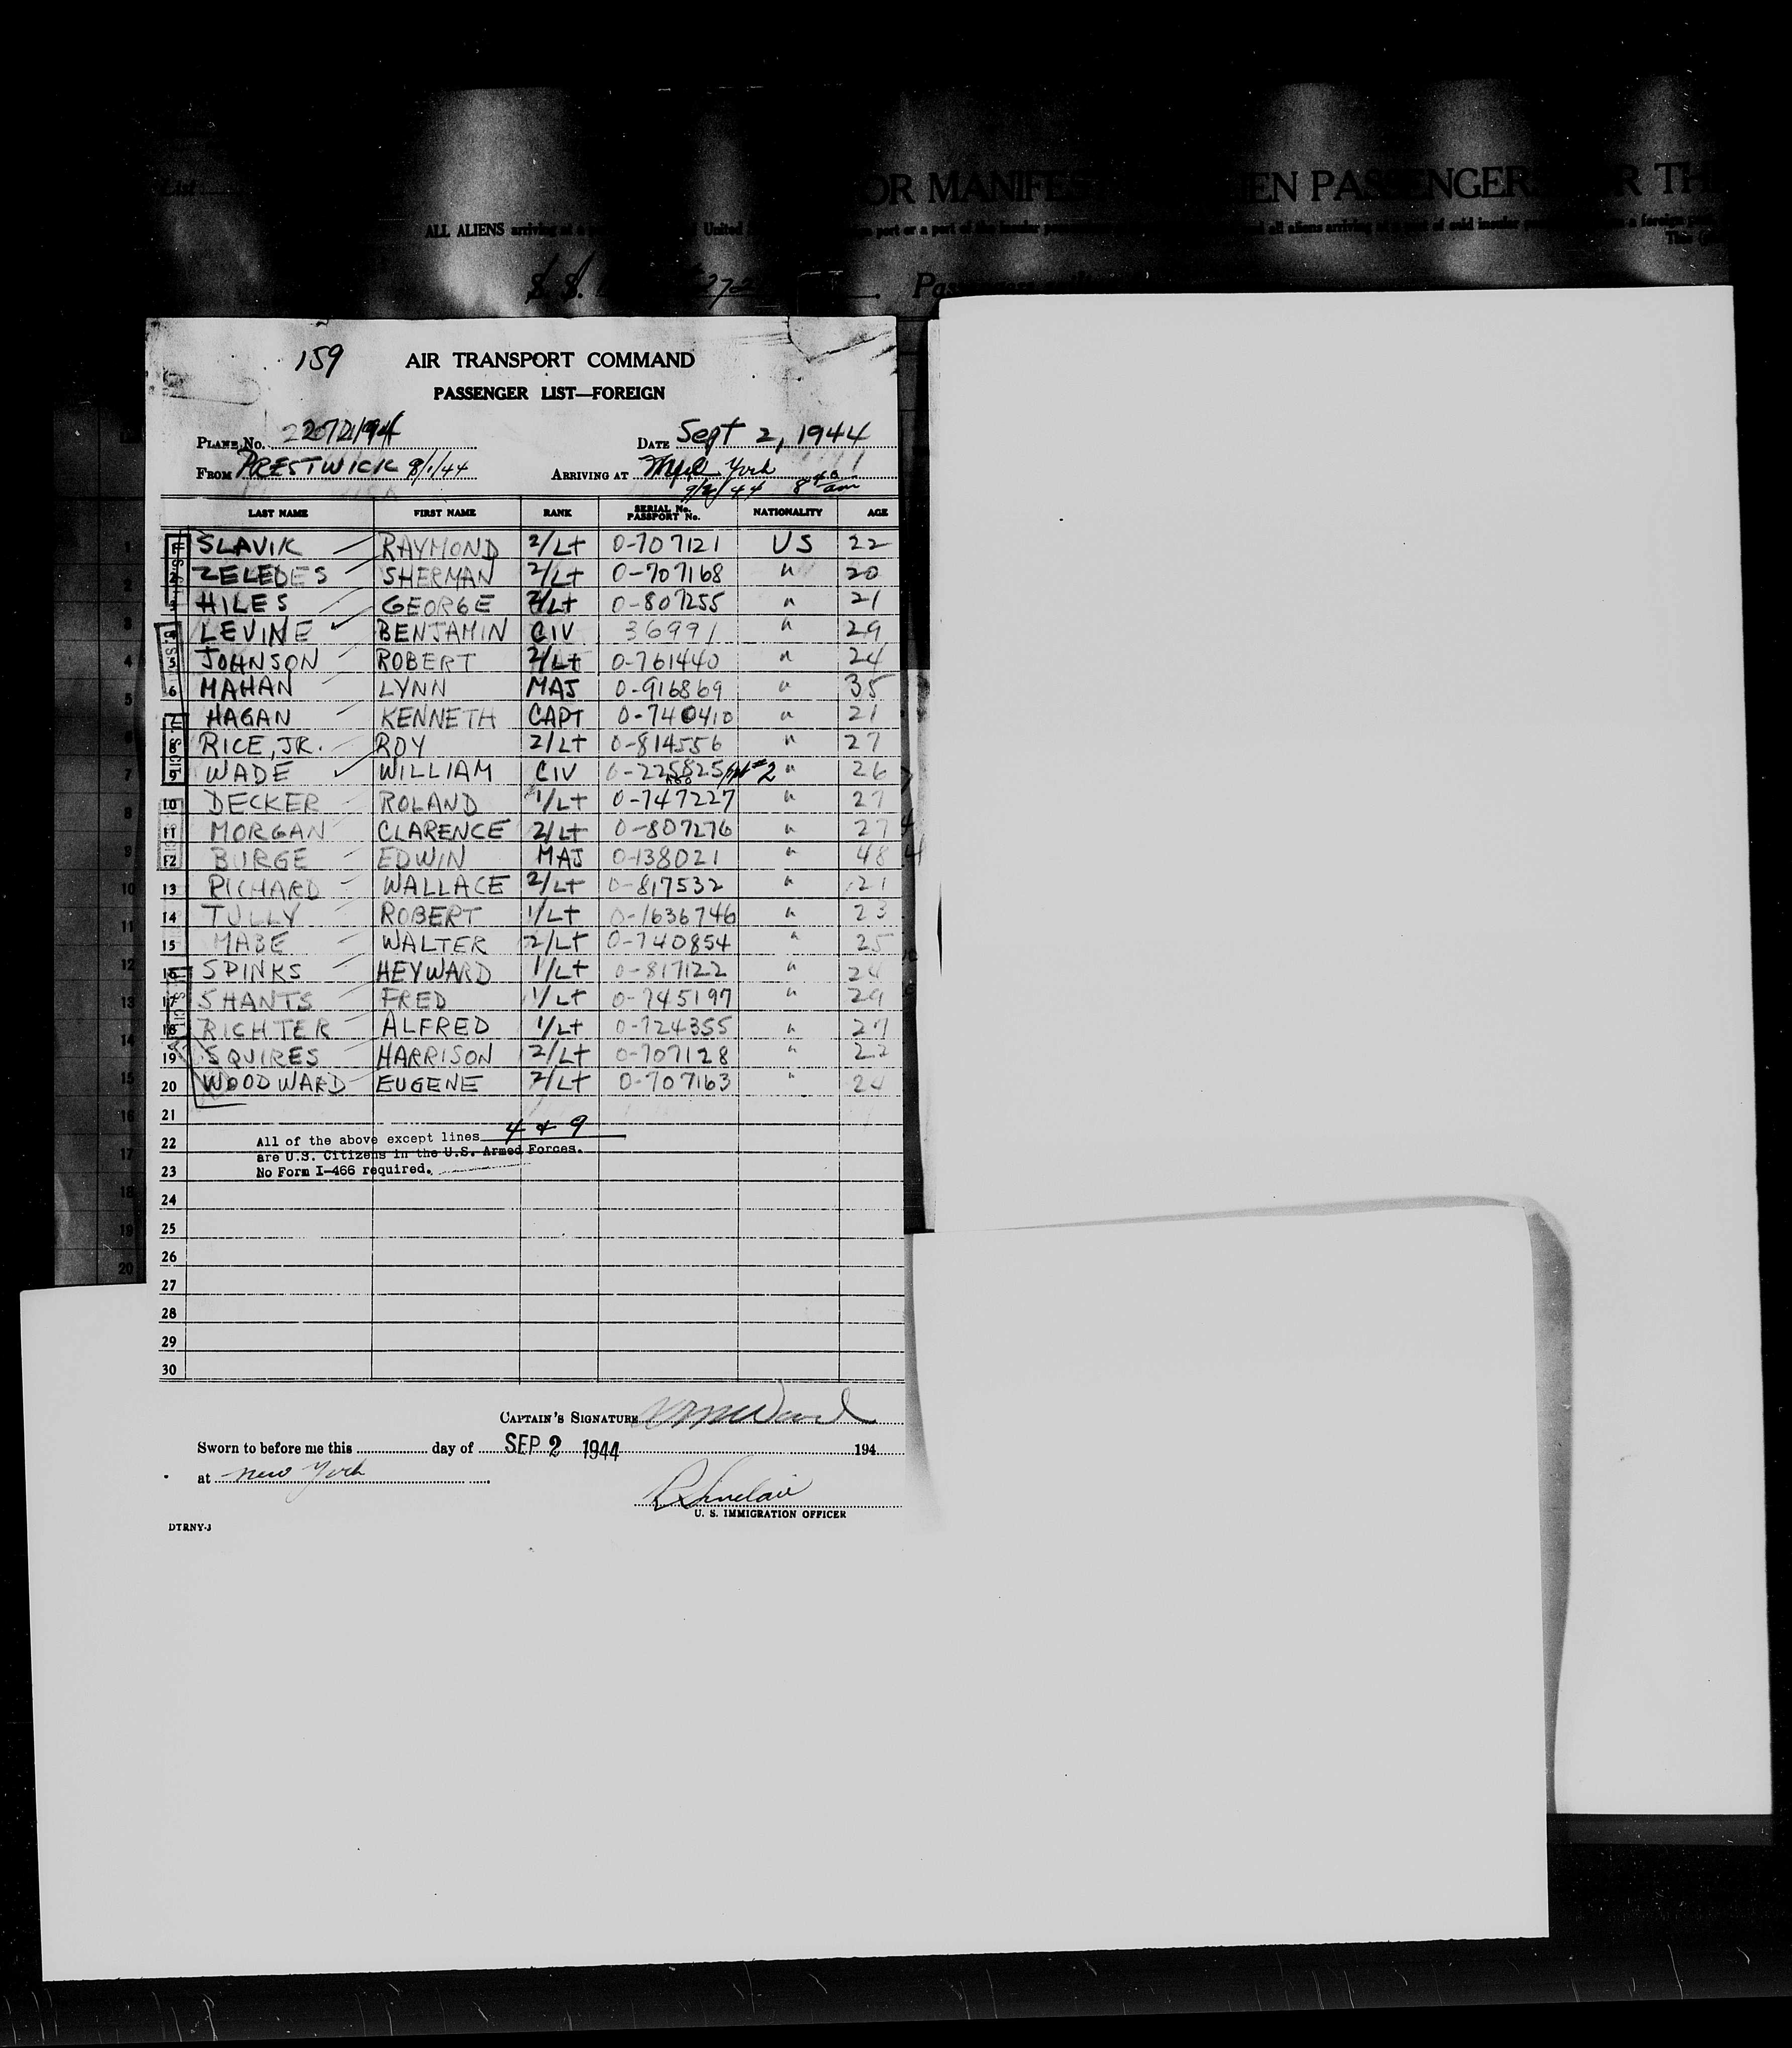 OR MANIFES EN PASSENGERS R TH
ALL ALIENS arriving at a United port or a part of the insular all aliens arriving at a port of said insular a foreign
This
S. S. 272
159
AIR TRANSPORT COMMAND
PASSENGER LIST—FOREIGN
PLANE No. DATE Sept 2, 1944
FROM PRESTWICK 9/1/44 ARRIVING AT New York
9/2/44 8 40 am
LAST NAME FIRST NAME RANK SERIAL No. PASSPORT No. NATIONALITY AGE
1 SLAVIK RAYMOND 2/Lt 0-707121 US 22
2 ZELEDES SHERMAN 2/Lt 0-707168 " 20
3 HILES GEORGE 2/Lt 0-807255 " 21
4 LEVINE BENJAMIN CIV 36991 " 29
5 JOHNSON ROBERT 2/Lt 0-761440 " 24
6 MAHAN LYNN MAJ 0-916869 " 35
7 HAGAN KENNETH CAPT 0-740410 " 21
8 RICE, JR. ROY 2/Lt 0-814556 " 27
9 WADE WILLIAM CIV 0-225825 #2 " 26
10 DECKER ROLAND 1/Lt 0-747227 " 27
11 MORGAN CLARENCE 2/Lt 0-807276 " 27
12 BURGE EDWIN MAJ 0-138021 " 48
13 RICHARD WALLACE 2/Lt 0-817532 " 21
14 TULLY ROBERT 1/Lt 0-1636746 " 23
15 MABE WALTER 2/Lt 0-740854 " 25
16 SPINKS HEYWARD 1/Lt 0-817122 " 24
17 SHANTS FRED 1/Lt 0-745197 " 29
18 RICHTER ALFRED 1/Lt 0-724355 " 27
19 SQUIRES HARRISON 2/Lt 0-707128 " 22
20 WOODWARD EUGENE 2/Lt 0-707163 " 24
21
22 All of the above except lines 4 & 9
are U.S. Citizens in the U.S. Armed Forces.
23 No Form I-466 required.
24
25
26
27
28
29
30
CAPTAIN'S SIGNATURE
Sworn to before me this day of SEP 2 1944 194
at New York
R Sinclair
U. S. IMMIGRATION OFFICER
DTRNY-J